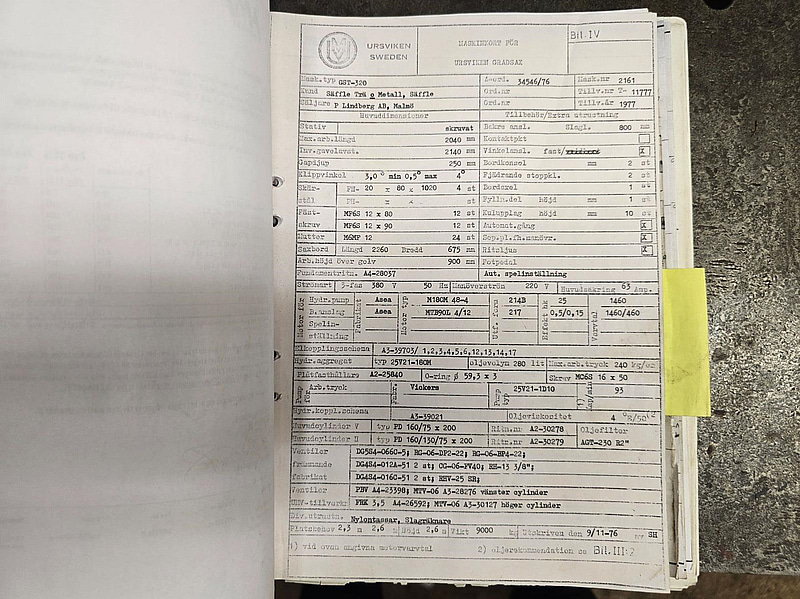 URSVIKEN
SWEDEN
MASKINKORT FÖR
URSVIKEN GRADSAX
Bil. IV
Mask.typ GST-320 A-ord. 34546/76 Mask.nr 2161
Kund Säffle Trä o Metall, Säffle Ord.nr Tillv.nr T- 11777
Säljare P Lindberg AB, Malmö Ord.nr Tillv.år 1977
Huvuddimensioner Tillbehör/Extra utrustning
Stativ skruvat Bakre ansl. Slagl. 800 mm
Max.arb.längd 2040 mm Kontaktpkt
Inv.gavelavst. 2140 mm Vinkelansl. fast/ x
Gapdjup 250 mm Bordkonsol mm 2 st
Klippvinkel 3,0° min 0,5° max 4° Fjädrande stoppkl. 2 st
Skär- FH- 20 x 80 x 1020 4 st Bordsaxel 1 st
stål FH- x x Fylln.del höjd mm 1 st
Fäst- MF6S 12 x 80 12 st Kulupplag höjd mm 10 st
skruv MF6S 12 x 90 12 st Automat.gång x
Mutter M6MF 12 24 st Sep.pl.fh.manövr. x
Saxbord Längd 2260 Bredd 675 mm Ritsljus x
Arb.höjd över golv 900 mm Fotpedal
Fundamentritn. A4-28037 Aut. spelinställning
Strömart 3-fas 380 V 50 Hz Manöverström 220 V Huvudsäkring 63 Amp.
Motor för Hydr.pump Fabrikat Asea Motor typ M180M 48-4 Utf. form 214B Effekt hk 25 Varvtal 1460
B.anslag Asea MTB90L 4/12 217 0,5/0,15 1460/460
Spelin-
ställning
Elkopplingsschema A3-39703/ 1,2,3,4,5,6,12,13,14,17
Hydr.aggregat typ 25V21-180M Oljevolym 280 lit Max.arb.tryck 240
Plåtfasthållare A2-25840 O-ring ø 59,3 x 3 Skruv MC6S 16 x 50
Pump för Arb.tryck Vickers Pump typ 25V21-1D10 93
Hydr.koppl.schema A3-39021 Oljeviskositet 4 °E/50°C
Huvudcylinder V typ PD 160/75 x 200 Ritn.nr A2-30278 Oljefilter
Huvudcylinder H typ PD 160/130/75 x 200 Ritn.nr A2-30279 AGT-230 R2"
Ventiler DG5S4-0660-5; RG-06-DP2-22; RG-06-BP4-22;
främmande DG4S4-012A-51 2 st; CG-06-FV40; RH-13 3/8";
fabrikat DG4S4-0160-51 2 st; RHV-25 SR;
Ventiler PBV A4-23398; MTV-06 A3-28276 vänster cylinder
URV-tillverkn FRK 3,5 A4-26592; MTV-06 A3-30127 höger cylinder
Div.utrustn. Nylontassar, Slagräknare
Platsbehov 2,3 m 2,6 m Höjd 2,6 m Vikt 9000 kg Utskriven den 9/11-76 SH
1) vid ovan angivna motorvarvtal 2) oljerekommendation se Bil. III:2